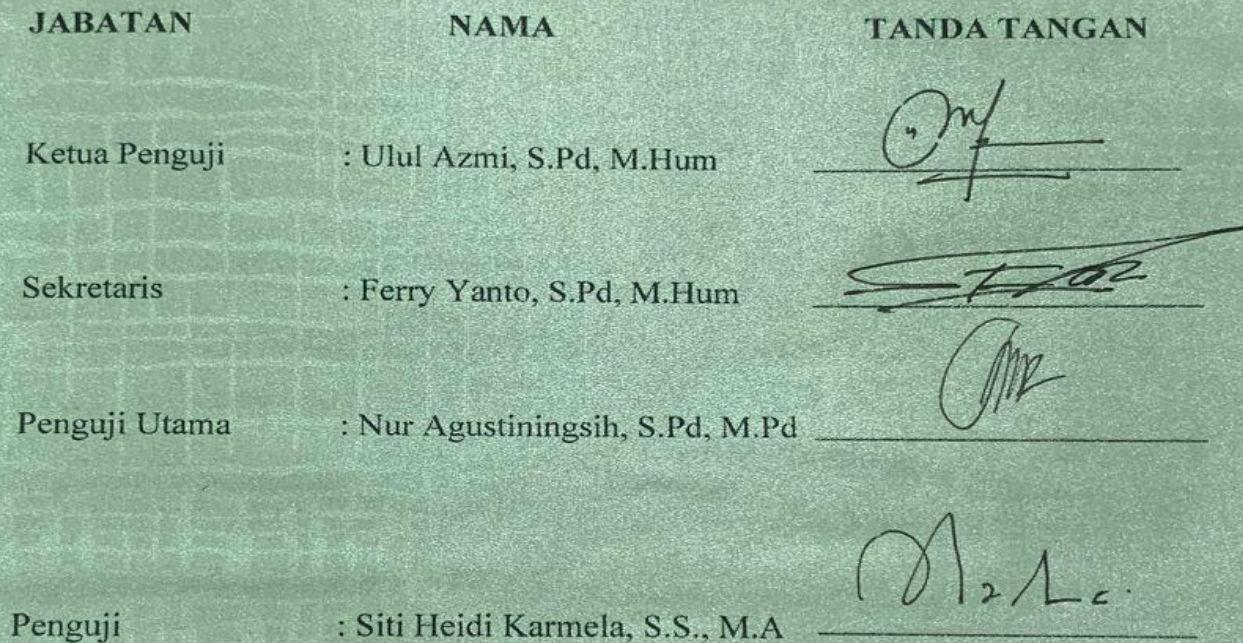 JABATAN NAMA TANDA TANGAN
Ketua Penguji : Ulul Azmi, S.Pd, M.Hum
Sekretaris : Ferry Yanto, S.Pd, M.Hum
Penguji Utama : Nur Agustiningsih, S.Pd, M.Pd
Penguji : Siti Heidi Karmela, S.S., M.A